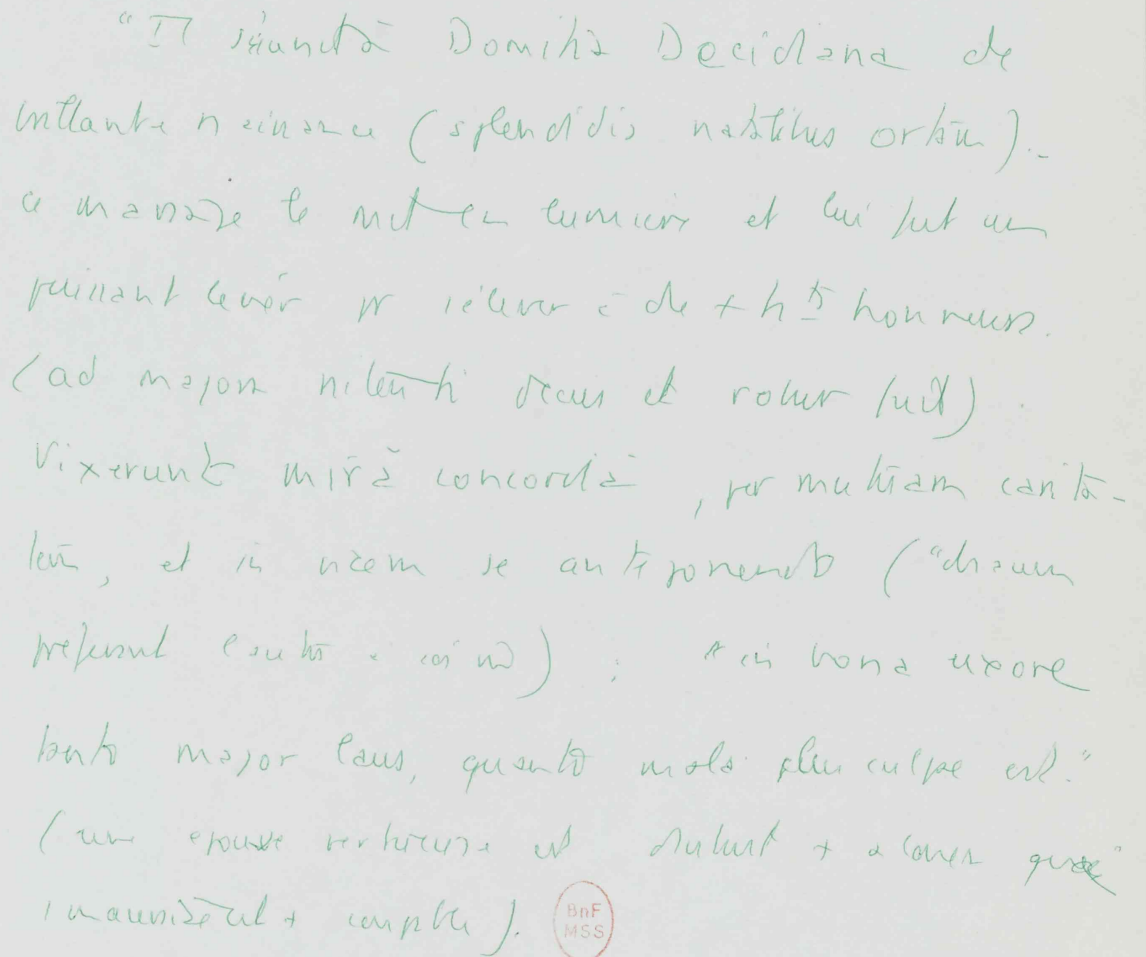 "Il s'aunità Domitia Decidiana de
brillante naissance (splendidis natalibus ortam).-
ce mariage le mit en lumière et lui fut un
puissant levier pr s'élever à de + hts honneurs.
(ad majora nitenti decus et robur fuit)
Vixerunt mirâ concordiâ, per mutuam carita-
tem, et in vicem se anteponendo ("chacun
préférant l'autre à soi m) ; in bona uxore
tanto major laus, quanto mala plus culpae est."
(une épouse vertueuse est d'autant + à louer que
mauvaise est + coupble).
BnF
MSS